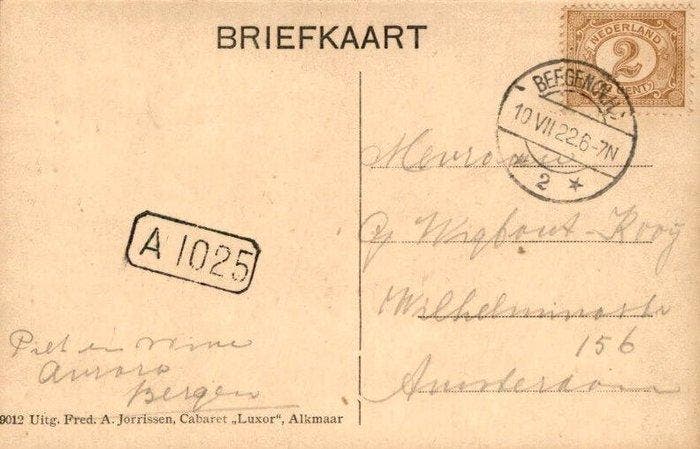 BRIEFKAART
NEDERLAND
2
CENT
BERGEN (N.H.)
10 VII 22.6-7N
2
Mevrouw
Wigbout-Kooy
Wilhelminastr
156
Amsterdam
A 1025
Piet en Wime
Aurora
Bergen
9012 Uitg. Fred. A. Jorrissen, Cabaret „Luxor", Alkmaar